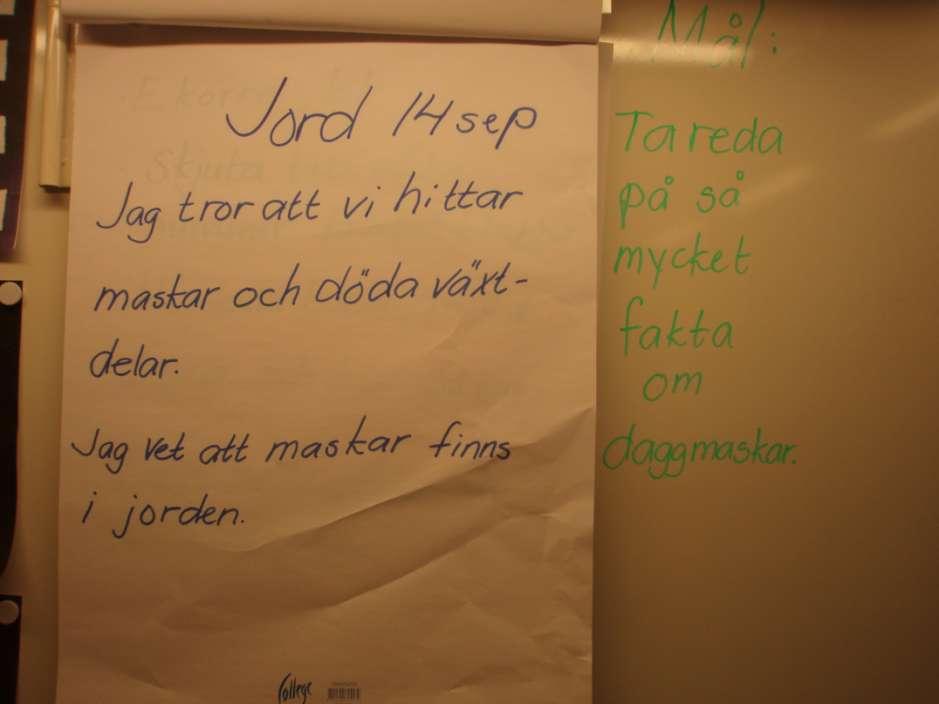 Jord 14 sep
Jag tror att vi hittar
maskar och döda växt-
delar.
Jag vet att maskar finns
i jorden.
College
Mål:
Ta reda
på så
mycket
fakta
om
daggmaskar.